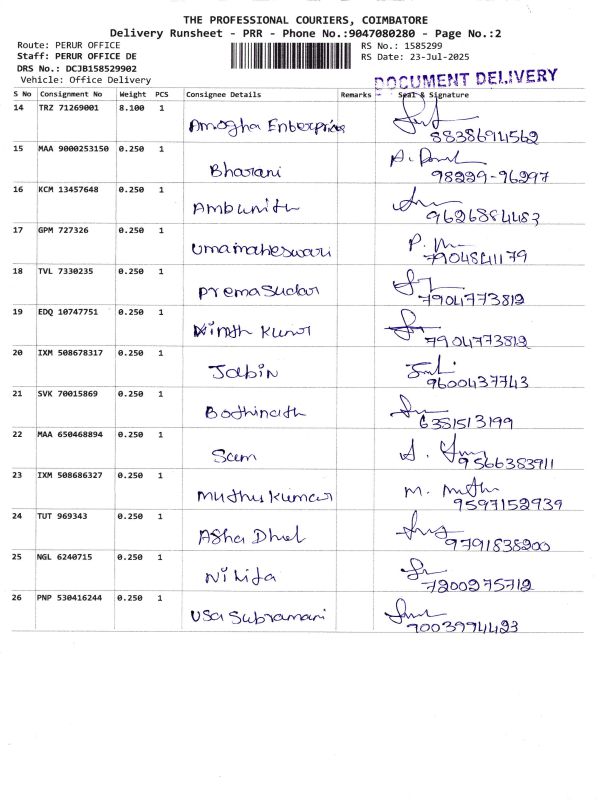 THE PROFESSIONAL COURIERS, COIMBATORE
Delivery Runsheet - PRR - Phone No.:9047080280 - Page No.:2
Route: PERUR OFFICE RS No.: 1585299
Staff: PERUR OFFICE DE RS Date: 23-Jul-2025
DRS No.: DCJB158529902
Vehicle: Office Delivery DOCUMENT DELIVERY
S No Consignment No Weight PCS Consignee Details Remarks Seal & Signature
14 TRZ 71269001 8.100 1 Amogha Enterprise 88386914562
15 MAA 9000253150 0.250 1 Bharani 98229-96297
16 KCM 13457648 0.250 1 Ambunith 9626884483
17 GPM 727326 0.250 1 Umamaheswari 7904841179
18 TVL 7330235 0.250 1 Premasudar 7904773812
19 EDQ 10747751 0.250 1 7904773812
20 IXM 508678317 0.250 1 Jabin 9600437743
21 SVK 70015869 0.250 1 Bothinath 6381513199
22 MAA 650468894 0.250 1 Sam 9566383911
23 IXM 508686327 0.250 1 Muthukumar M. Muthu 9597152939
24 TUT 969343 0.250 1 Asha 9791838200
25 NGL 6240715 0.250 1 7200275712
26 PNP 530416244 0.250 1 Usa Subramani 7003994423